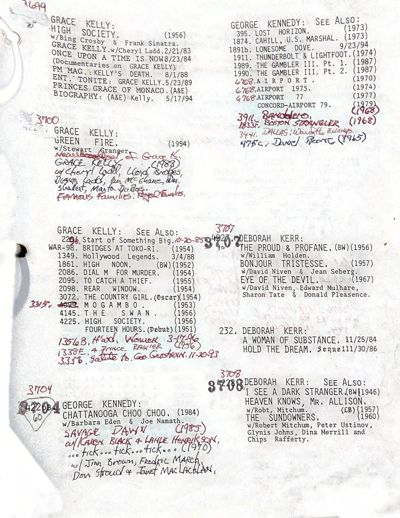 3699
GRACE KELLY:
HIGH SOCIETY. (1956)
w/Bing Crosby & Frank Sinatra.
GRACE KELLY.w/Cheryl Ladd.2/21/83
ONCE UPON A TIME IS NOW 8/23/84
(Documentaries on GRACE KELLY)
PM MAG. KELLY'S DEATH. 8/1/88
ENT. TONITE: GRACE KELLY.5/23/89
PRINCES GRACE OF MONACO.(A&E)
BIOGRAPHY: (A&E) Kelly. 5/17/94
3700
GRACE KELLY:
GREEN FIRE. (1994)
w/Stewart Granger.
GRACE KELLY (1988)
w/Cheryl Ladd, Lloyd Bridges,
FAMOUS FAMILIES.
GRACE KELLY: See Also:
Start of Something Big. 10-20-85
WAR-98. BRIDGES AT TOKO-RI. (1954)
1349. Hollywood Legends. 3/4/88
1861. HIGH NOON. (BW)(1952)
2086. DIAL M FOR MURDER. (1954)
2095. TO CATCH A THIEF. (1955)
2098. REAR WINDOW. (1954)
3072. THE COUNTRY GIRL.(Oscar)(1954)
MOGAMBO. (1953)
4145. THE SWAN. (1956)
4225. HIGH SOCIETY. (1956)
FOURTEEN HOURS.(Debut)(1951)
& PRINCE RANIER
3356. Salute to 11-20-93
3704
GEORGE KENNEDY:
CHATTANOOGA CHOO CHOO. (1984)
w/Barbara Eden & Joe Namath.
SAVAGE DAWN (1985)
w/KAREN BLACK & LANCE HENRIKSON,
...tick...tick...tick... (1970)
w/Jim Brown, Fredric MARCH,
Don Stroud & Janet MACLACHLAN,
GEORGE KENNEDY: See Also:
395. LOST HORIZON. (1973)
1874. CAHILL, U.S. MARSHALL. (1973)
1891b. LONESOME DOVE. 9/23/94
1911. THUNDERBOLT & LIGHTFOOT.(1974)
1989. THE GAMBLER III. Pt. 1. (1987)
1990. THE GAMBLER III. Pt. 2. (1987)
6768. AIRPORT. (1970)
6768. AIRPORT 1975. (1974)
6768. AIRPORT 77 (1977)
CONCORD-AIRPORT 79. (1979)
3911. BANDOLERO (1968)
BOSTON STRANGLER (1968)
3441. DALLAS:
(1965)
3707
DEBORAH KERR:
THE PROUD & PROFANE.(BW)(1956)
w/William Holden.
BONJOUR TRISTESSE. (1957)
w/David Niven & Jean Seberg.
EYE OF THE DEVIL. (1967)
w/David Niven, Edward Mulhare,
Sharon Tate & Donald Pleasence.
232. DEBORAH KERR:
A WOMAN OF SUBSTANCE. 11/25/84
HOLD THE DREAM. Sequel11/30/86
3708
3708
DEBORAH KERR: See Also:
I SEE A DARK STRANGER.(BW)1946)
HEAVEN KNOWS, MR. ALLISON.
w/Robt. Mitchum. (1957)
THE SUNDOWNERS. (1960)
w/Robert Mitchum, Peter Ustinov,
Glynis Johns, Dina Merrill and
Chips Rafferty.